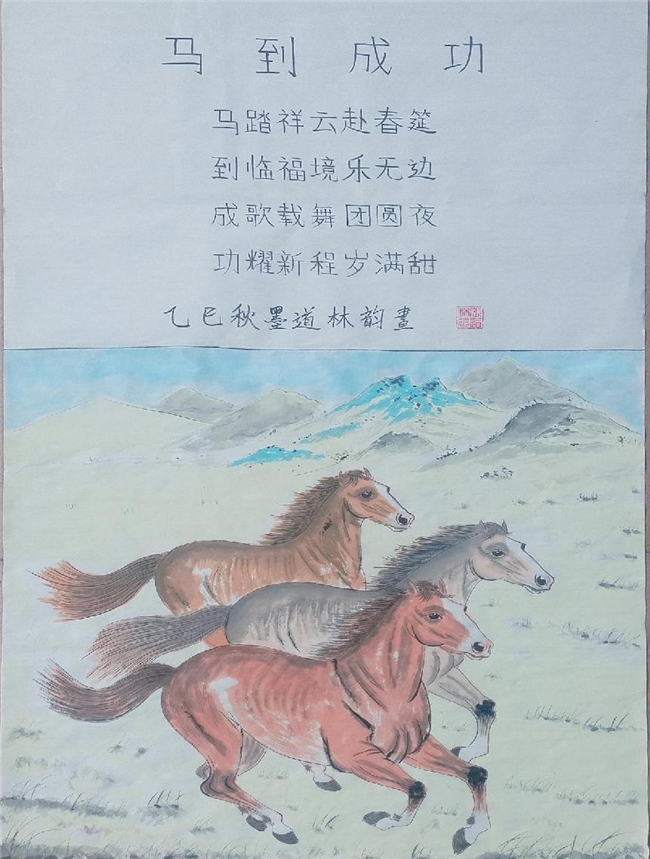 马到成功
马踏祥云赴春筵
到临福境乐无边
成歌载舞团圆夜
功耀新程岁满甜
乙巳秋墨道林韵畫